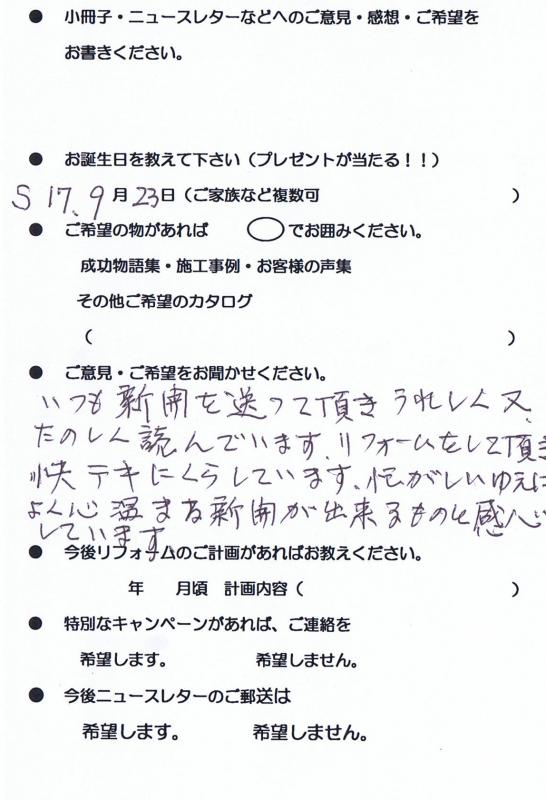 ● 小冊子・ニュースレターなどへのご意見・感想・ご希望を
お書きください。
● お誕生日を教えて下さい（プレゼントが当たる！！）
S 17.9月23日（ご家族など複数可　　　　）
● ご希望の物があれば　　◯でお囲みください。
成功物語集・施工事例・お客様の声集
その他ご希望のカタログ
（　　　　　　　　）
● ご意見・ご希望をお聞かせください。
いつも新聞を送って頂きうれしく又、
たのしく読んでいます、リフォームをして頂き
快テキにくらしています、忙がしいゆえに
よく心温まる新聞が出来るものと感心
しています
● 今後リフォームのご計画があればお教えください。
年　　月頃　計画内容（　　　　　　　　）
● 特別なキャンペーンがあれば、ご連絡を
希望します。　　　　希望しません。
● 今後ニュースレターのご郵送は
希望します。　　　　希望しません。